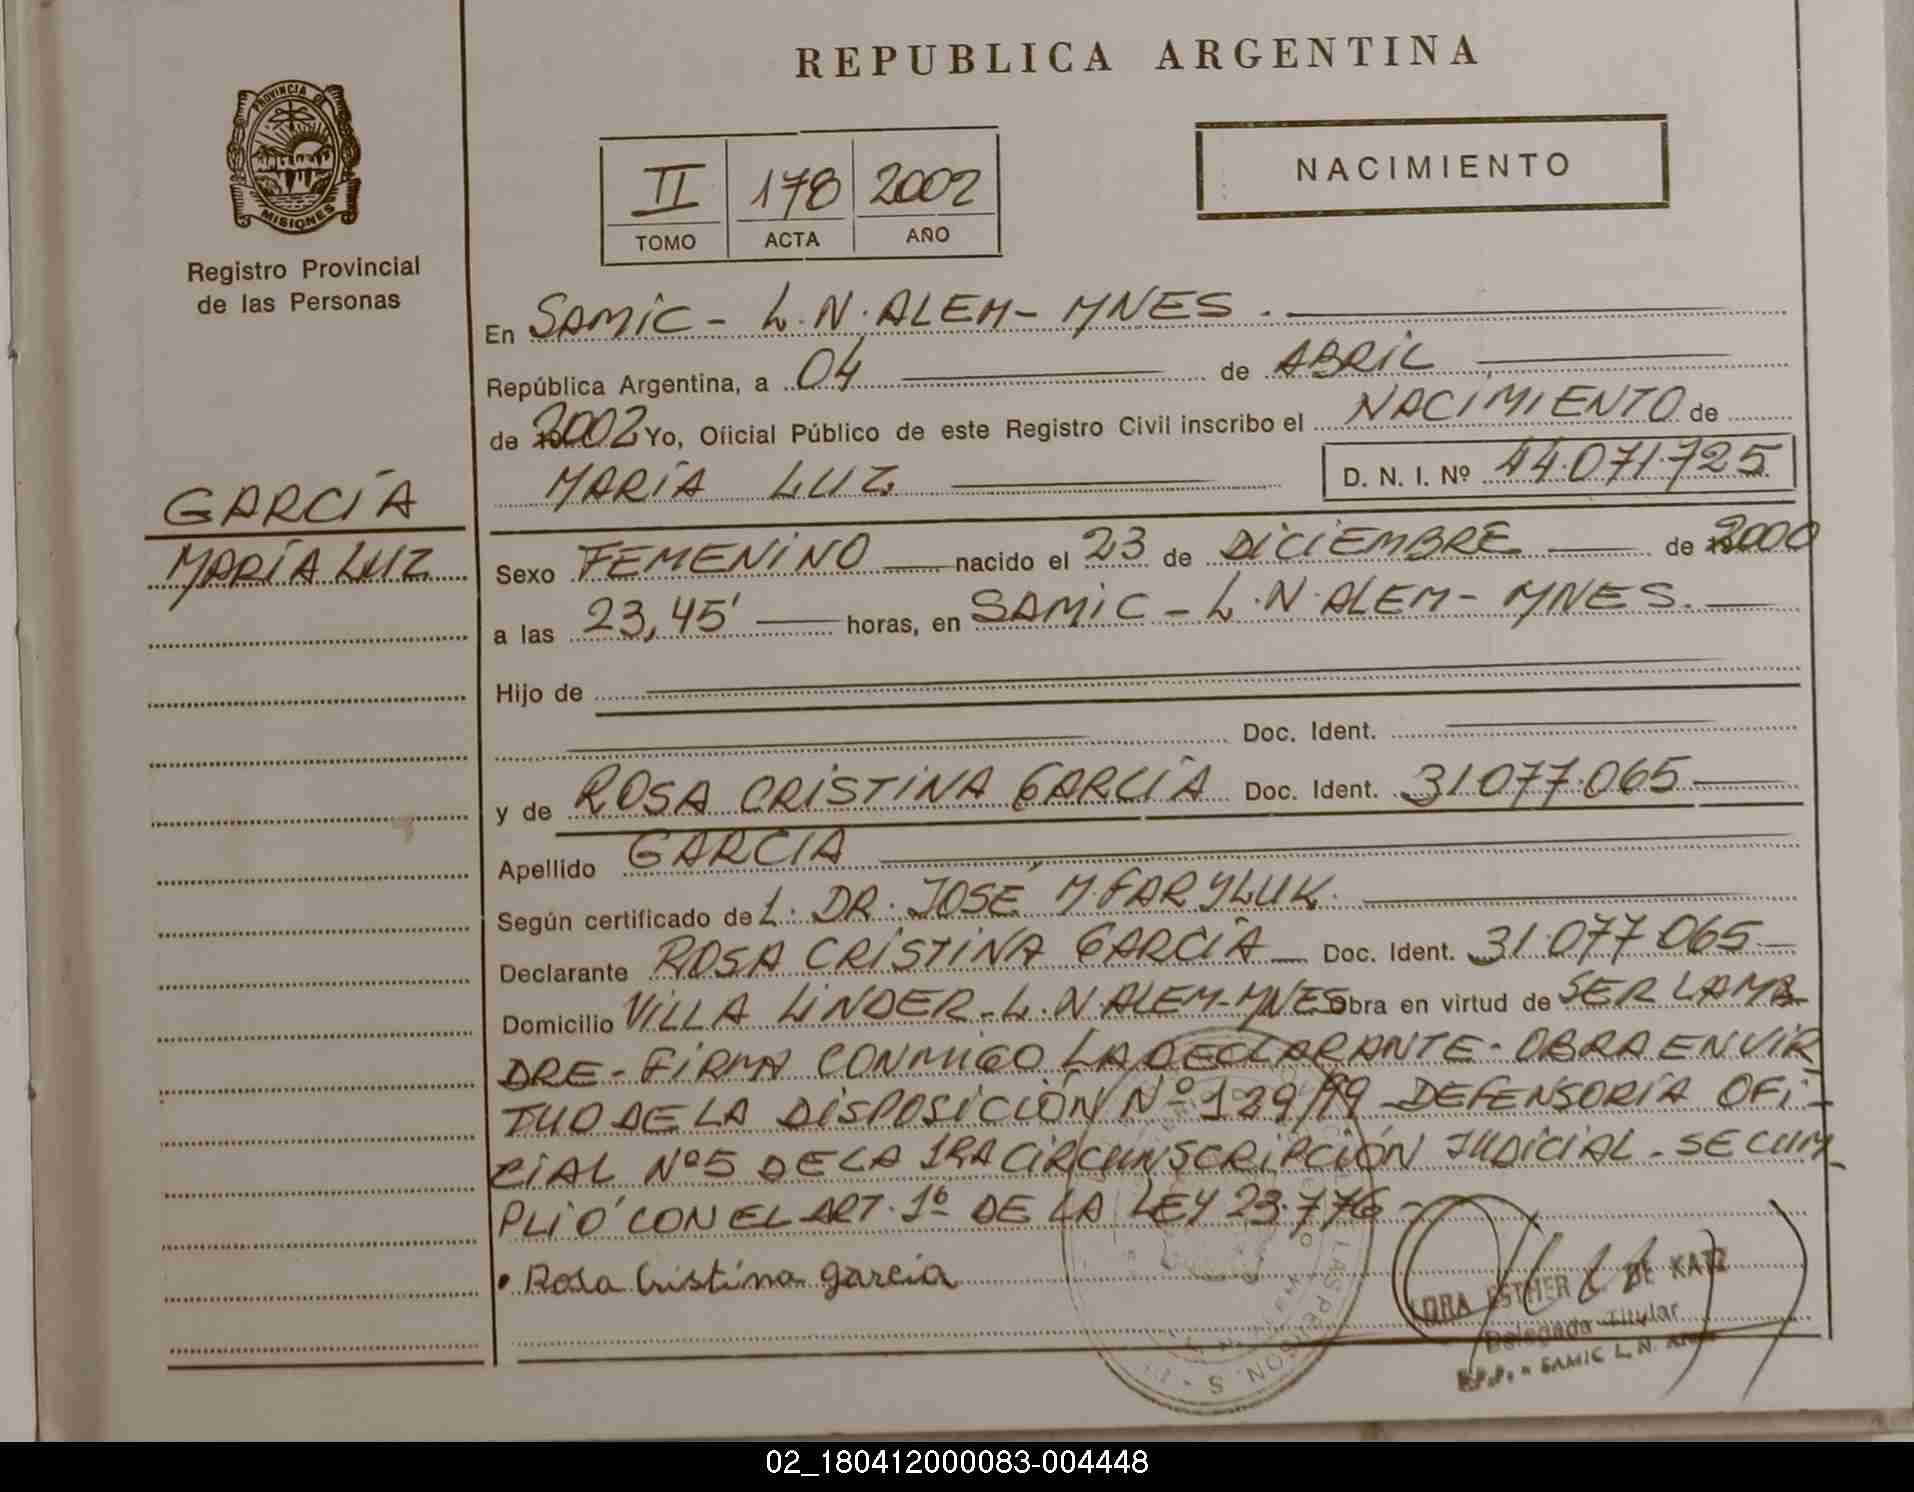 REPUBLICA ARGENTINA
PROVINCIA DE
MISIONES
Registro Provincial
de las Personas
II 178 2002
TOMO ACTA AÑO
NACIMIENTO
En SAMIC - L.N.ALEM - MNES.
República Argentina, a 04 de ABRIL
de 2002 Yo, Oficial Público de este Registro Civil inscribo el NACIMIENTO de
MARÍA LUZ D. N. I. Nº 44.071.725
GARCÍA
MARÍA LUZ
Sexo FEMENINO nacido el 23 de DICIEMBRE de 2000
a las 23,45' horas, en SAMIC - L.N.ALEM - MNES.
Hijo de
Doc. Ident.
y de ROSA CRISTINA GARCÍA Doc. Ident. 31.077.065
Apellido GARCIA
Según certificado de L. DR. JOSÉ M. FARYLUK.
Declarante ROSA CRISTINA GARCÍA Doc. Ident. 31.077.065
Domicilio VILLA LINDER - L.N.ALEM - MNES Obra en virtud de SER LA MA
DRE - FIRMA CONMIGO LA DECLARANTE - OBRA EN VIR
TUD DE LA DISPOSICIÓN Nº 129/99 - DEFENSORÍA OFI-
CIAL Nº5 DE LA 1RA CIRCUNSCRIPCIÓN JUDICIAL - SE CUM-
PLIÓ CON EL ART. 1º DE LA LEY 23.776 -
Rosa Cristina Garcia
DRA ESTHER DE KATZ
Delegada Titular
SAMIC L. N.
LAS PERSONAS
02_180412000083-004448